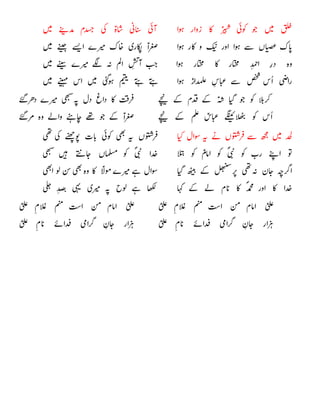 خلق میں جو کوئی شہیؑد کا زوار ہوا
پاک عصیاں سے ہوا اور نیک و کار ہوا
وہ در احمدِ مختار کا مختار ہوا
راضی اُس شخص سے عباسِ علمدار ہوا
کربلا کو جو گیا شہؑ کے قدم کے نیچے
اُس کو بٹھلائینگے عباسؑ علم کے نیچے
لحد میں مجھ سے فرشتوں نے یہ سوال کیا
تو اپنے رب کو نبیؐ کو امامؑ کو بتلا
اگرچہ جان نہ تھی پر سنبھل کے بیٹھ گیا
خدا کا اور محمدؐ کا نام لے کے کہا
علیؑ امامِ من است منم غلامِ علیؑ
ہزار جانِ گرامی فدائے نامِ علیؑ
آئی سنانی شاہؑ کی جسدم مدینے میں
صغراؑ پکاری خاک میرے ایسے جینے میں
جب آتشِ الم نہ لگے میرے سینے میں
بنتے بنتے یتیم ہوگئی میں اس مہینے میں
فرقت کا داغ دل پہ سبھی میرے دھرگئے
صغراؑ کے جو تھے چاہنے والے وہ مرگئے
فرشتوں یہ بھی کوئی بات پوچھنے کی تھی
خدا نبیؐ کو مسلماں جانتے ہیں سبھی
سوال ہے میرے مولاؑ کا وہ بھی سن لو ابھی
لکھا ہے لوحِ پہ میری یہی بصدِ جلی
علیؑ امامِ من است منم غلامِ علیؑ
ہزار جانِ گرامی فدائے نامِ علیؑ